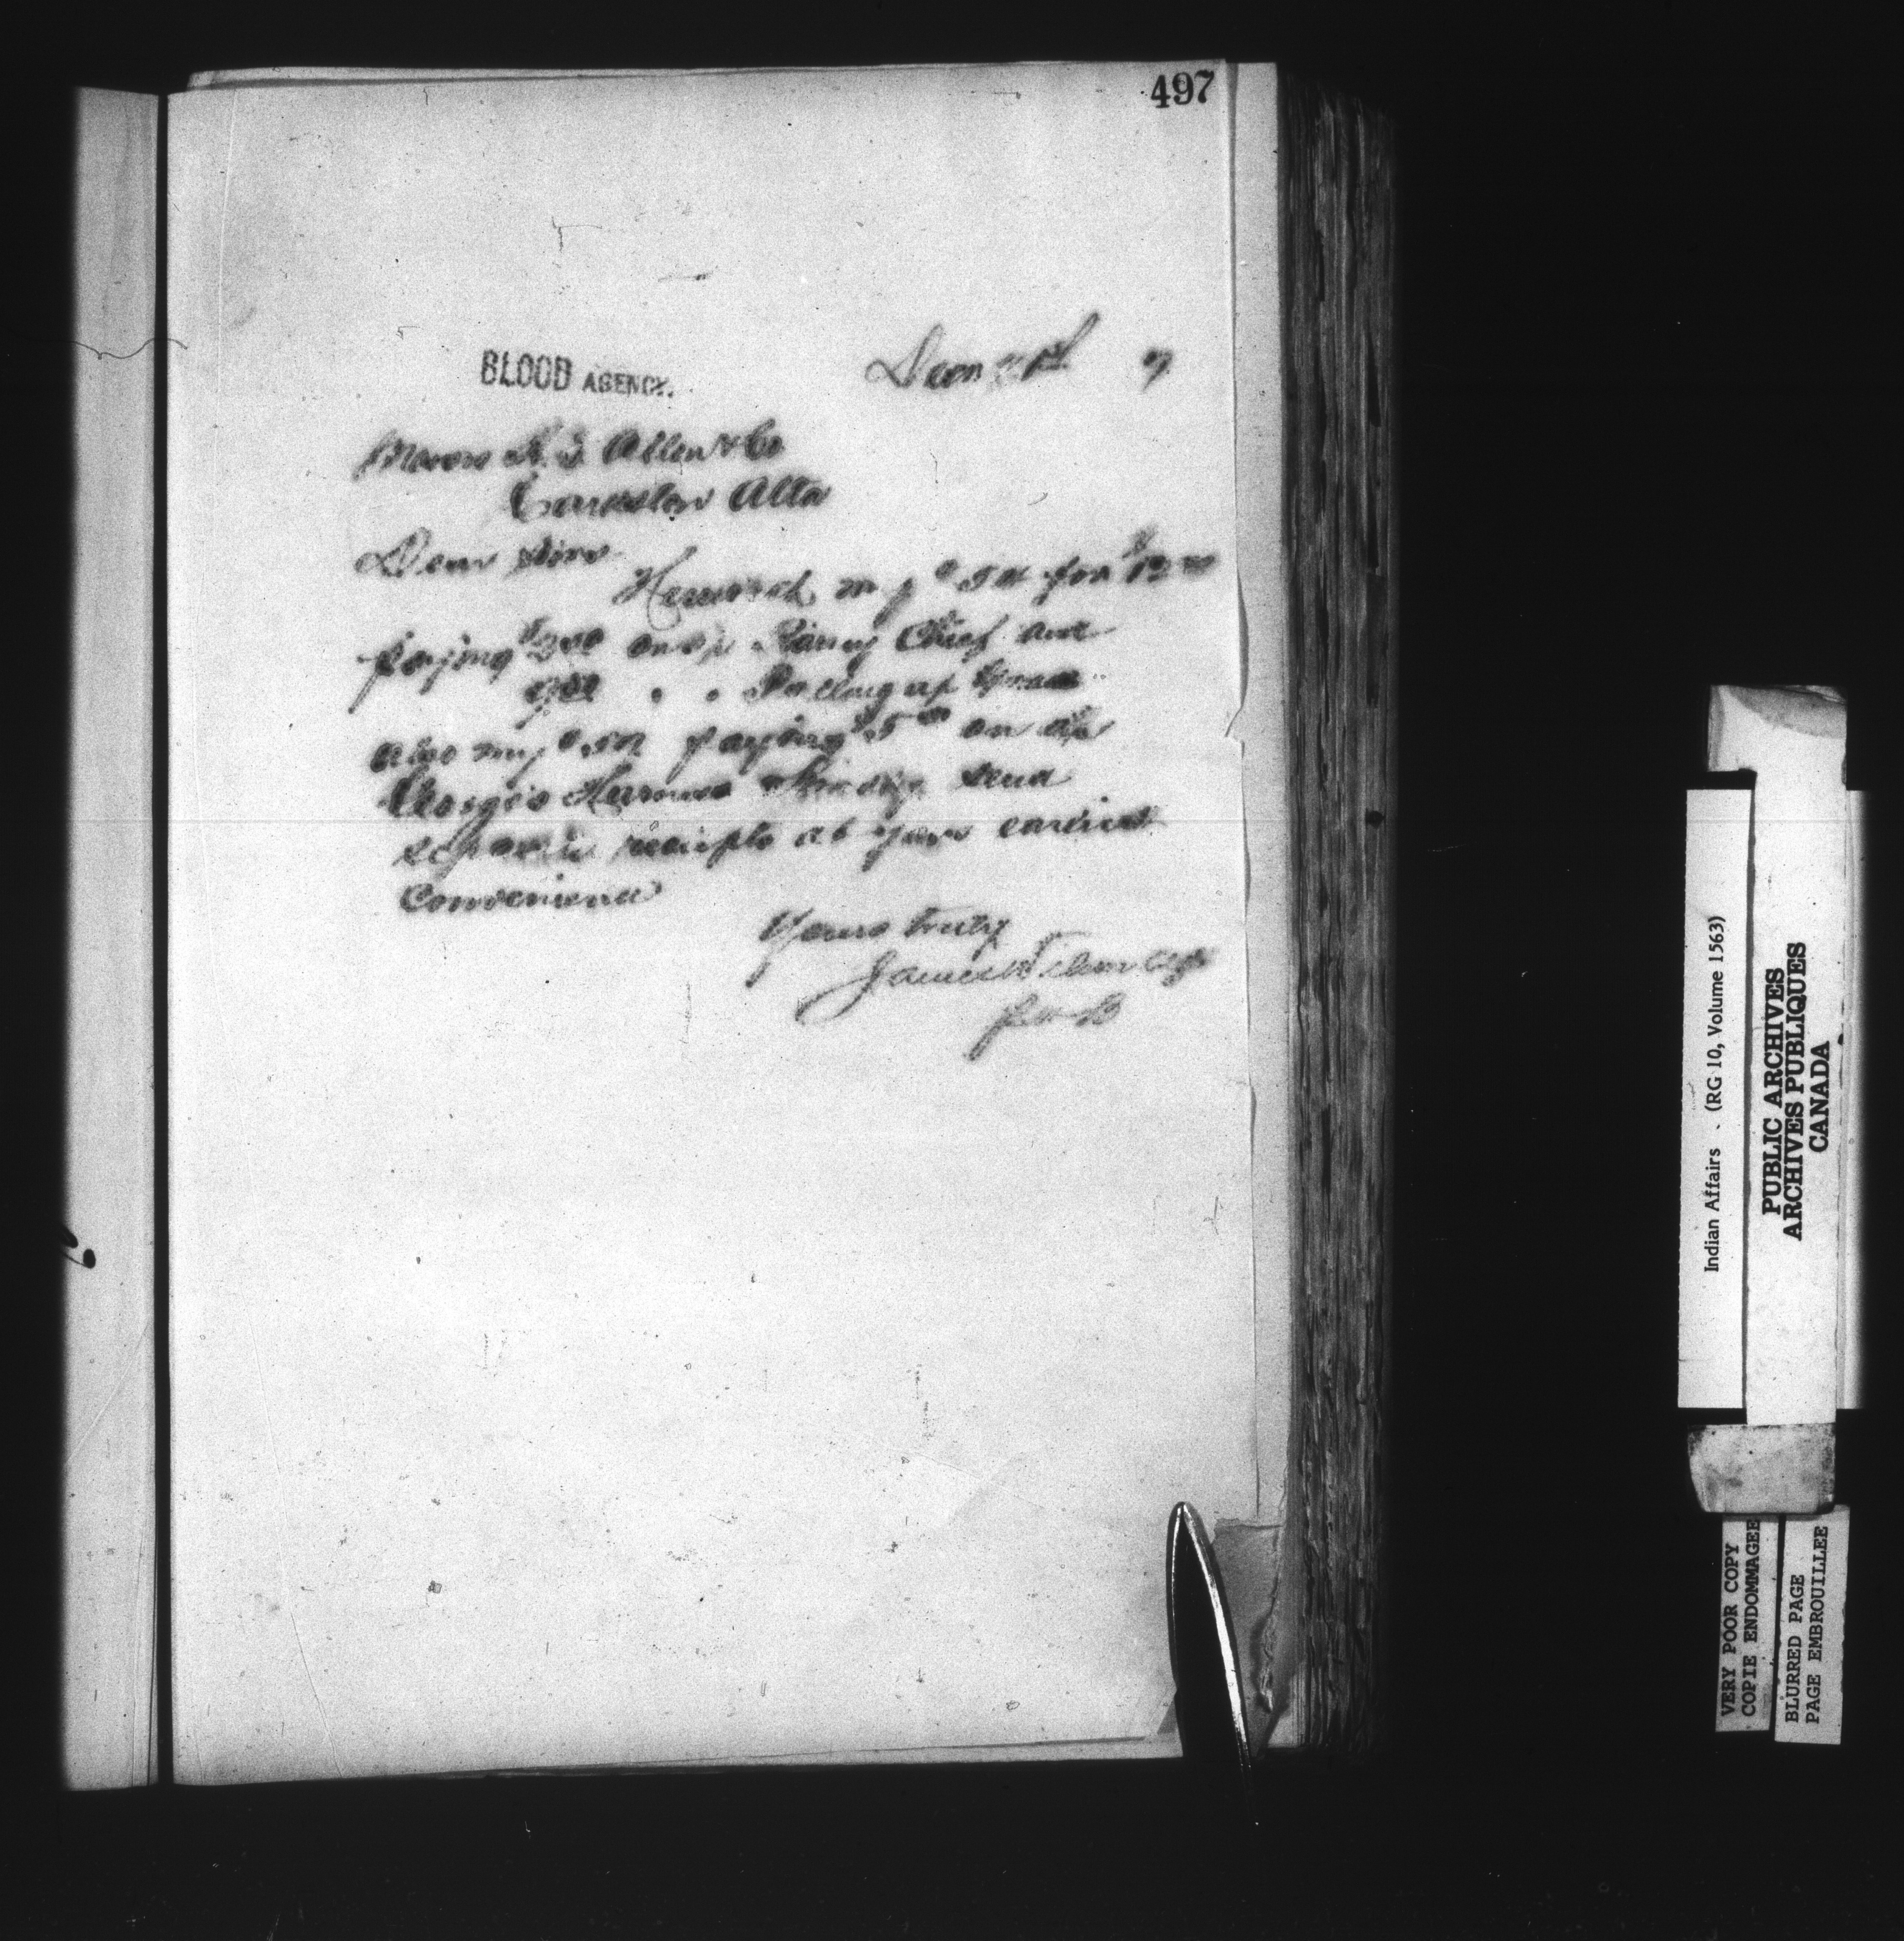 497
BLOOD AGENCY.
Decm 21st 7
Messrs H. S. Allen & Co
Cardston Alta
Dear Sirs
Herewith my for $12 00
paying $3 00 on a/c Rainy Chief and
9 00 " " Pulling up Grass
also my paying $5 00 on a/c
send
separate receipts at your earliest
convenience
Yours truly
James Wilson Agt
Indian Affairs . (RG 10, Volume 1563)
PUBLIC ARCHIVES
ARCHIVES PUBLIQUES
CANADA
VERY POOR COPY
COPIE ENDOMMAGEE
BLURRED PAGE
PAGE EMBROUILLEE